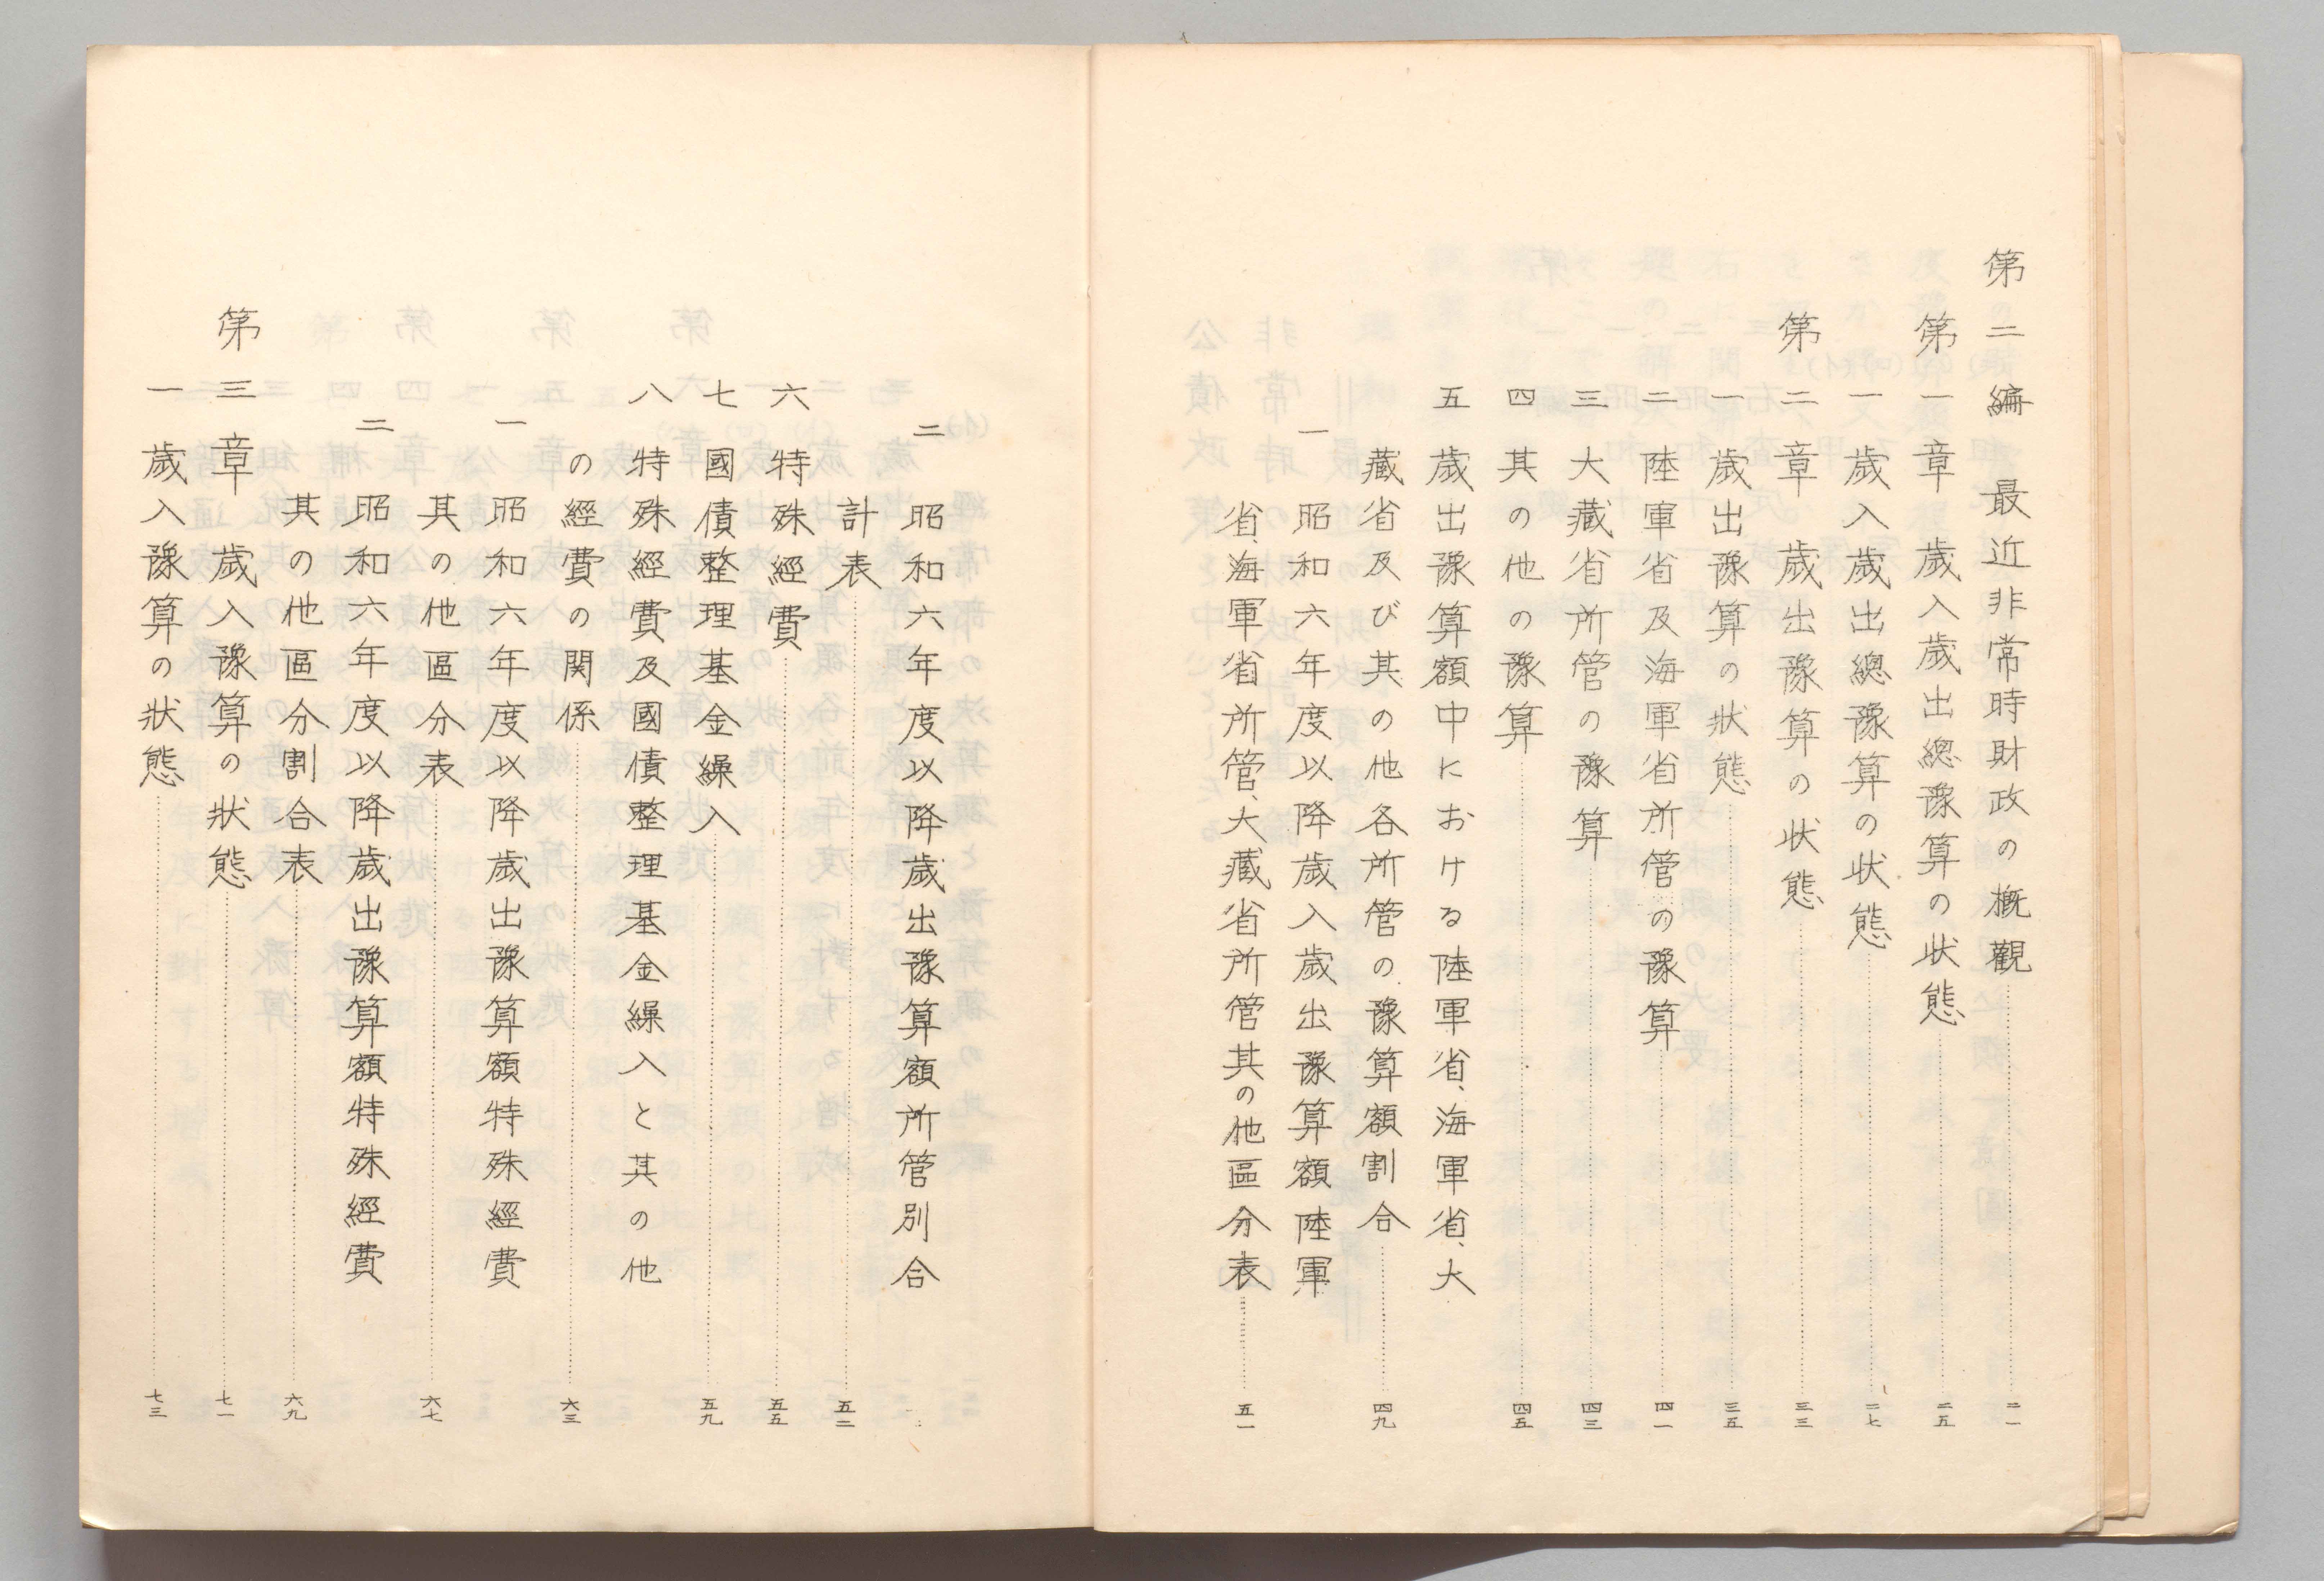 第二編 最近非常時財政の概觀……二一
第一章 歲入歲出總豫算の状態……二五
一 歲入歲出總豫算の状態……二七
第二章 歲出豫算の状態……三三
一 歲出豫算の状態……三五
二 陸軍省及海軍省所管の豫算……四一
三 大藏省所管の豫算……四三
四 其の他の豫算……四五
五 歲出豫算額中における陸軍省、海軍省、大
藏省及び其の他各所管の豫算額割合……四九
一 昭和六年度以降歲入歲出豫算額陸軍
省、海軍省所管、大藏省所管其の他區分表……五一
二 昭和六年度以降歲出豫算額所管別合
計表……五二
六 特殊經費……五五
七 國債整理基金繰入……五九
八 特殊經費及國債整理基金繰入と其の他
の經費の関係……六三
一 昭和六年度以降歲出豫算額特殊經費
其の他區分表……六七
二 昭和六年度以降歲出豫算額特殊經費
其の他區分割合表……六九
第三章 歲入豫算の状態……七一
一 歲入豫算の状態……七三